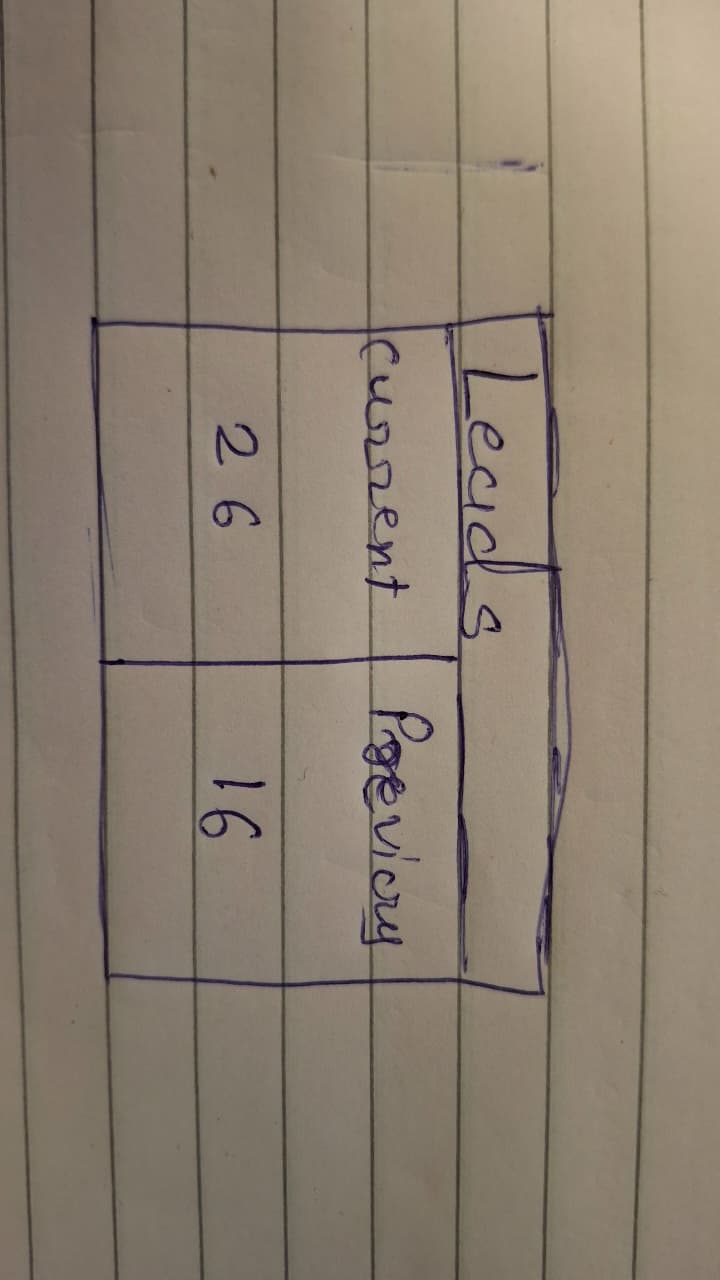 Leads
Current Previous
26 16